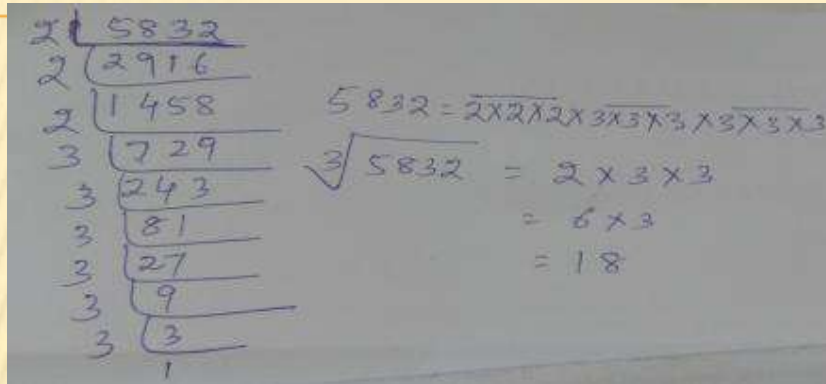 2 5832
2 2916
2 1458
3 729
3 243
3 81
3 27
3 9
3 3
1
5832 = 2×2×2×3×3×3×3×3×3
∛5832 = 2×3×3
= 6×3
= 18